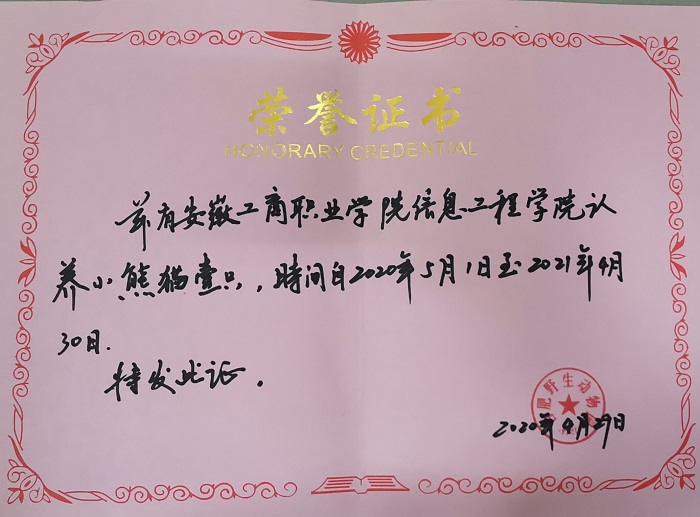 荣誉证书
HONORARY CREDENTIAL
兹有安徽工商职业学院信息工程学院认
养小熊猫壹只，时间自2020年5月1日至2021年4月
30日.
特发此证。
合肥野生动物园
2020年4月29日